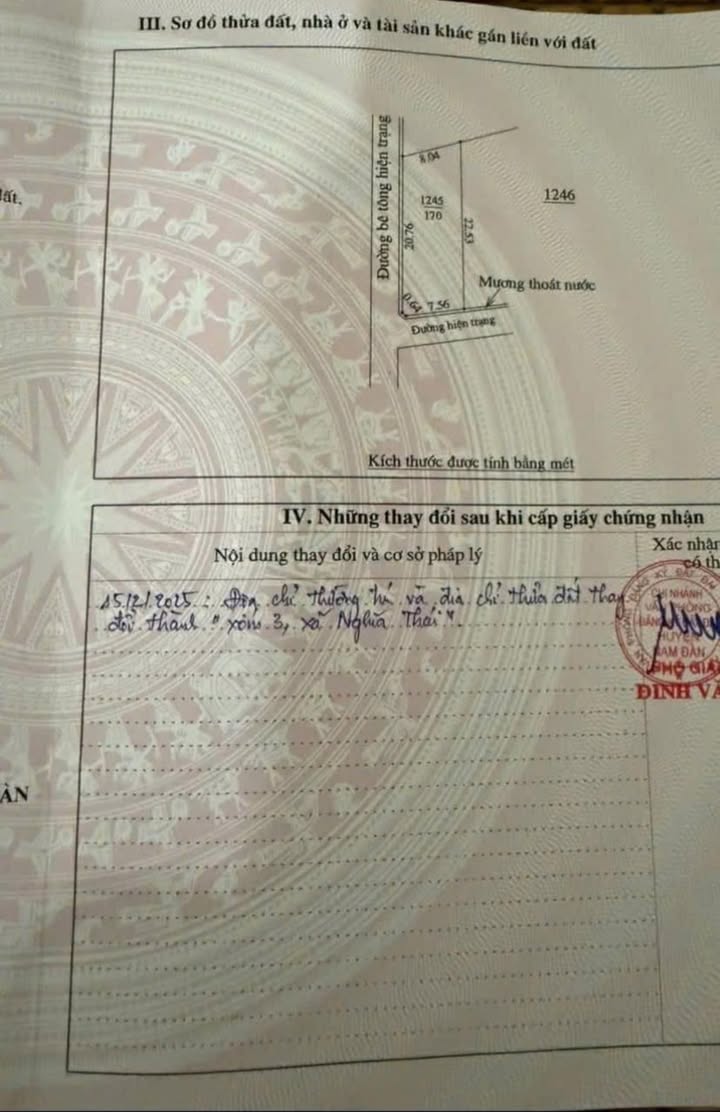 III. Sơ đồ thửa đất, nhà ở và tài sản khác gắn liền với đất
đất,
Đường bê tông hiện trạng
8.04
1245
170
1246
20.76
22.53
0.64
7.56
Mương thoát nước
Đường hiện trạng
Kích thước được tính bằng mét
IV. Những thay đổi sau khi cấp giấy chứng nhận
Nội dung thay đổi và cơ sở pháp lý
Xác nhận
có th
15/2/2025: Địa chỉ thường trú và địa chỉ thửa đất thay
đổi thành "xóm 3, xã Nghĩa Thái".
ĐĂNG KÝ ĐẤT ĐAI
CHI NHÁNH
HUYỆN
NAM ĐÀN
PHÓ GIÁ
ĐINH VĂ
ÀN